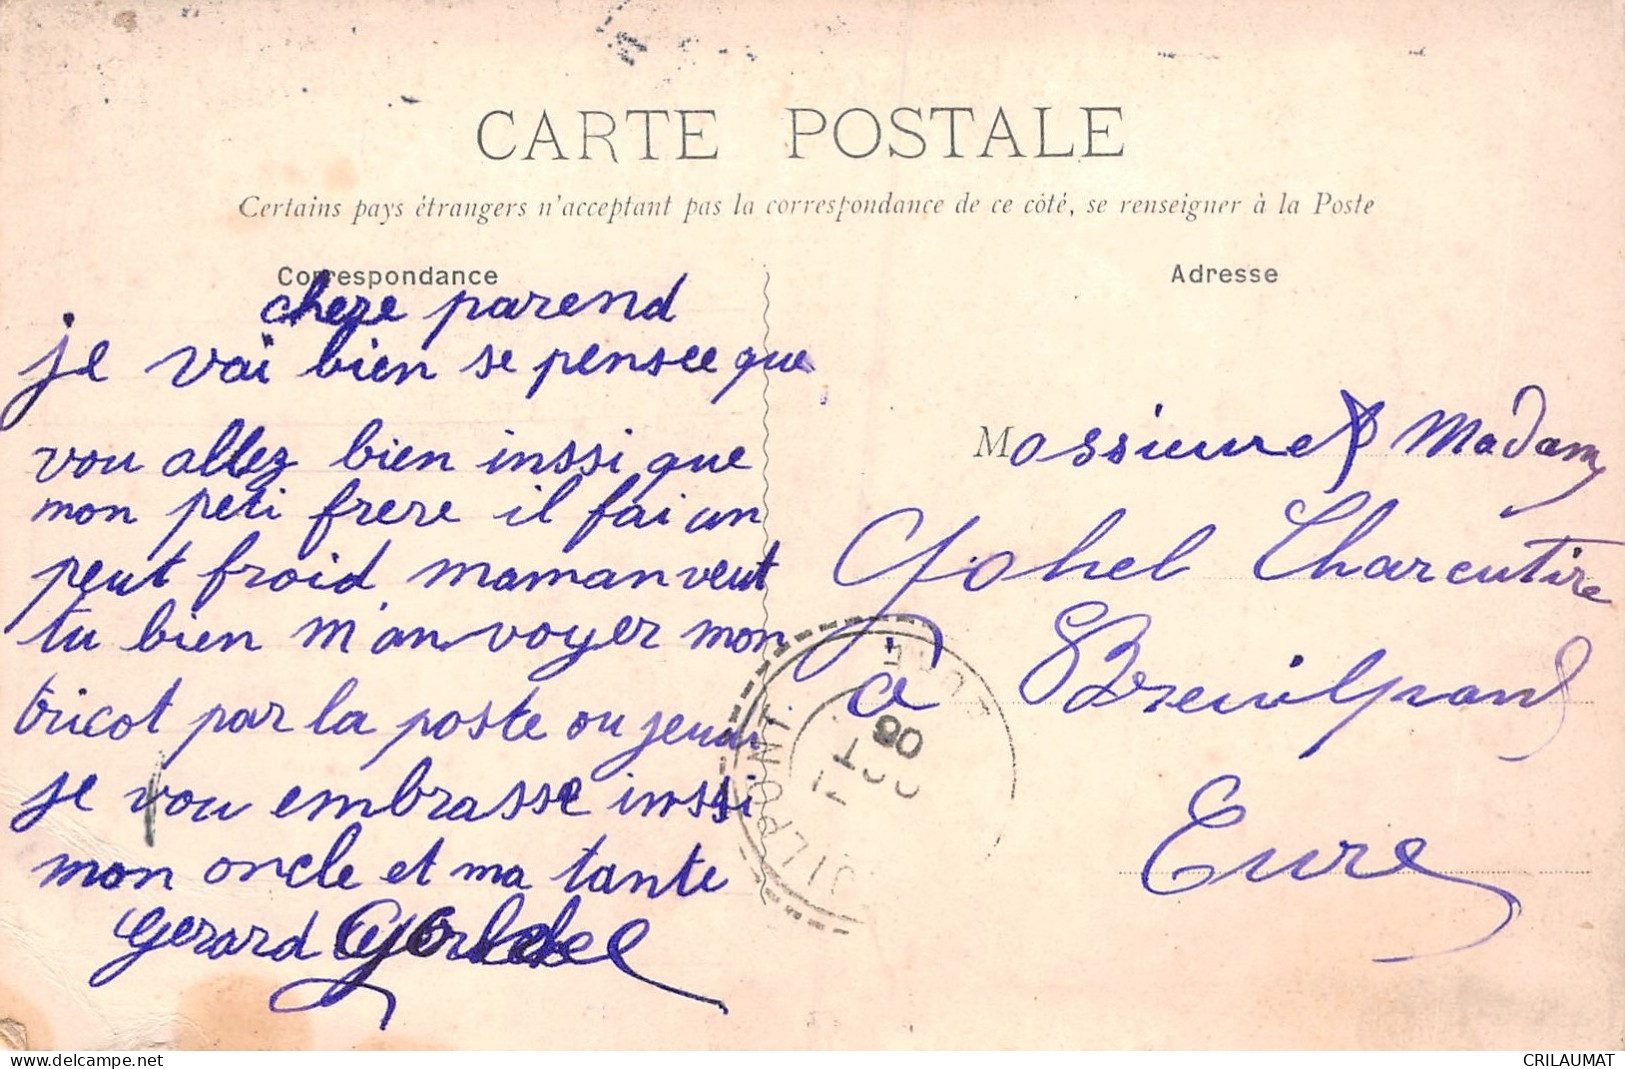 CARTE POSTALE
Certains pays étrangers n'acceptant pas la correspondance de ce côté, se renseigner à la Poste
Correspondance
Adresse
chere parend
je vai bien se pensee que
vou allez bien inssi que
mon peti frere il fai un
peut froid, maman veut
tu bien m'an voyer mon
tricot par la poste ou jeudi
je vou embrasse inssi
mon oncle et ma tante
Gerard
Monssieur et Madam
Gohel Charcutire
à Breuilpont
Eure
EURE
OCT
08
UILPONT
delcampe.net
CRILAUMAT